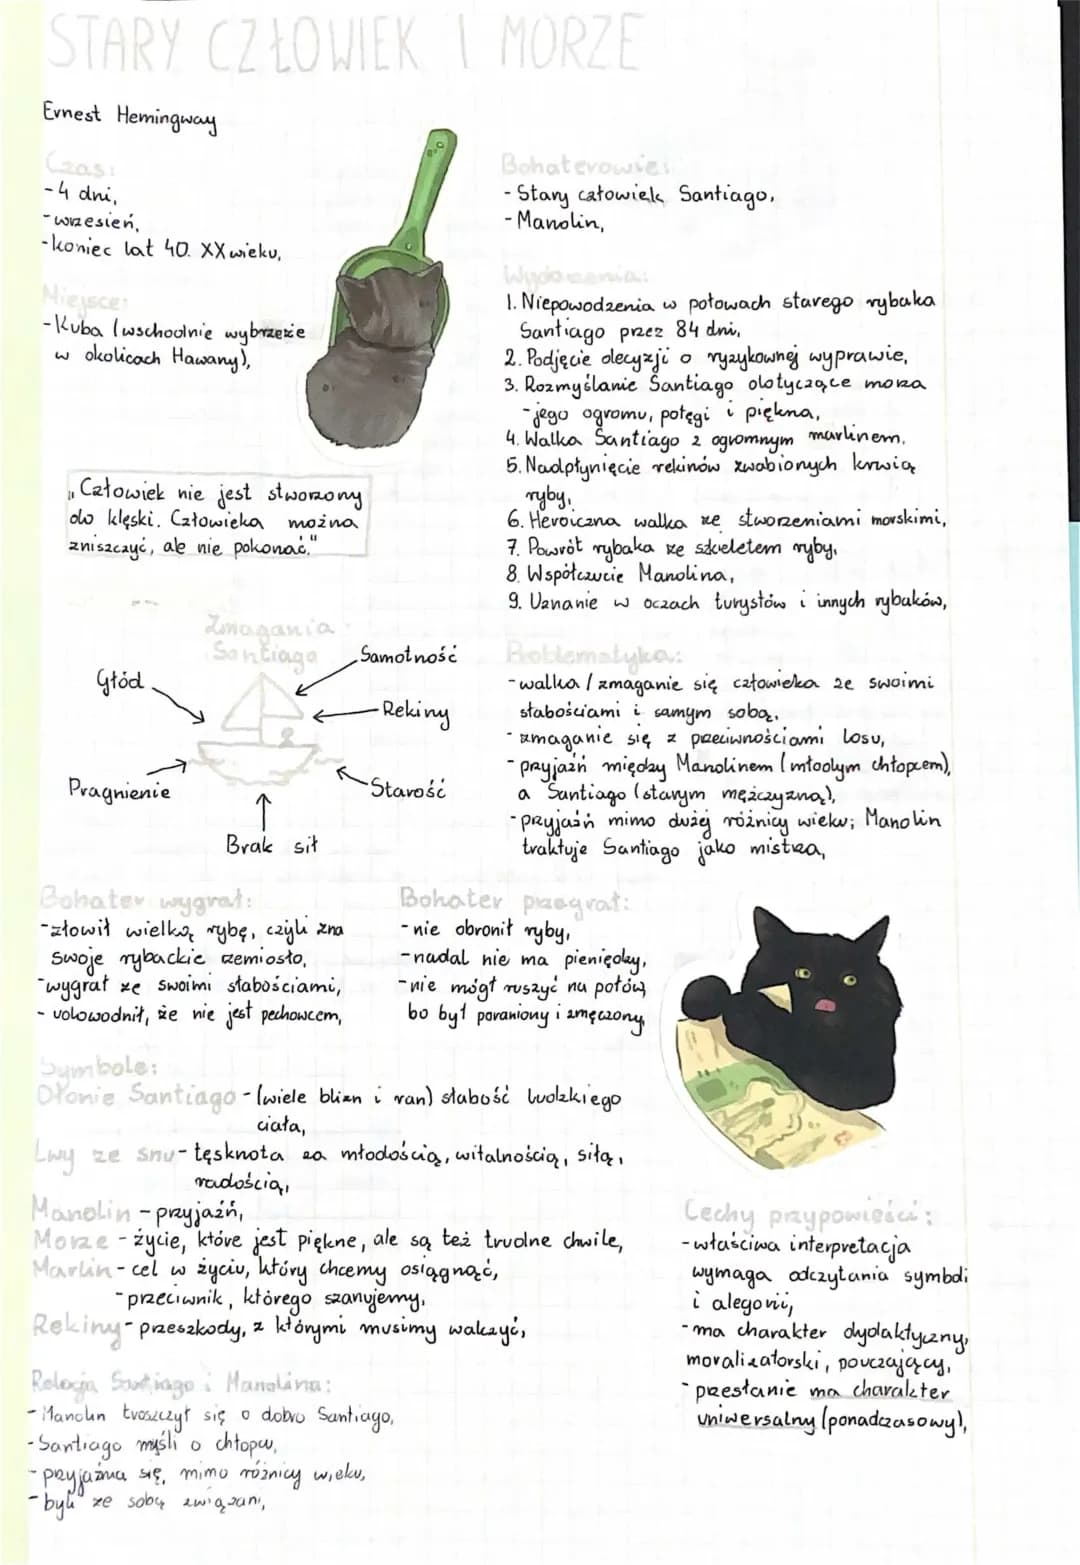 STARY CZŁOWIEK I MORZE
Ernest Hemingway
Czas:
-4 dni,
-wrzesień,
-koniec lat 40. XX wieku,
Miejsce:
-Kuba (wschodnie wybrzeże
w okolicach Hawany),
„Człowiek nie jest stworzony
do klęski. Człowieka można
zniszczyć, ale nie pokonać."
Zmagania
Santiago
Głód
Pragnienie
Brak sił
Samotność
Rekiny
Starość
Bohaterowie:
- Stary człowiek Santiago,
- Manolin,
Wydarzenia:
1. Niepowodzenia w połowach starego rybaka
Santiago przez 84 dni,
2. Podjęcie decyzji o ryzykownej wyprawie,
3. Rozmyślanie Santiago dotyczące morza
-jego ogromu, potęgi i piękna,
4. Walka Santiago z ogromnym marlinem.
5. Nadpłynięcie rekinów zwabionych krwią
ryby,
6. Heroiczna walka ze stworzeniami morskimi,
7. Powrót rybaka ze szkieletem ryby,
8. Współczucie Manolina,
9. Uznanie w oczach turystów i innych rybaków,
Problematyka:
-walka / zmaganie się człowieka ze swoimi
słabościami i samym sobą,
- zmaganie się z przeciwnościami losu,
- przyjaźń między Manolinem (młodym chłopcem),
a Santiago (starym mężczyzną),
-przyjaźń mimo dużej różnicy wieku; Manolin
traktuje Santiago jako mistrza,
Bohater wygrał:
-złowił wielką rybę, czyli zna
swoje rybackie rzemiosło,
-wygrał ze swoimi słabościami,
- udowodnił, że nie jest pechowcem,
Bohater przegrał:
- nie obronił ryby,
- nadal nie ma pieniędzy,
-nie mógł ruszyć na połów,
bo był poraniony i zmęczony,
Symbole:
Dłonie Santiago - (wiele blizn i ran) słabość ludzkiego
ciała,
Lwy ze snu - tęsknota za młodością, witalnością, siłą,
radością,
Manolin - przyjaźń,
Morze - życie, które jest piękne, ale są też trudne chwile,
Marlin - cel w życiu, który chcemy osiągnąć,
-przeciwnik, którego szanujemy,
Rekiny - przeszkody, z którymi musimy walczyć,
Relacja Santiago i Manolina:
- Manolin troszczył się o dobro Santiago,
- Santiago myśli o chłopcu,
- przyjaźnią się, mimo różnicy wieku,
- byli ze sobą związani,
Cechy przypowieści:
-właściwa interpretacja
wymaga odczytania symboli
i alegorii,
- ma charakter dydaktyczny,
moralizatorski, pouczający,
- przesłanie ma charakter
uniwersalny (ponadczasowy),